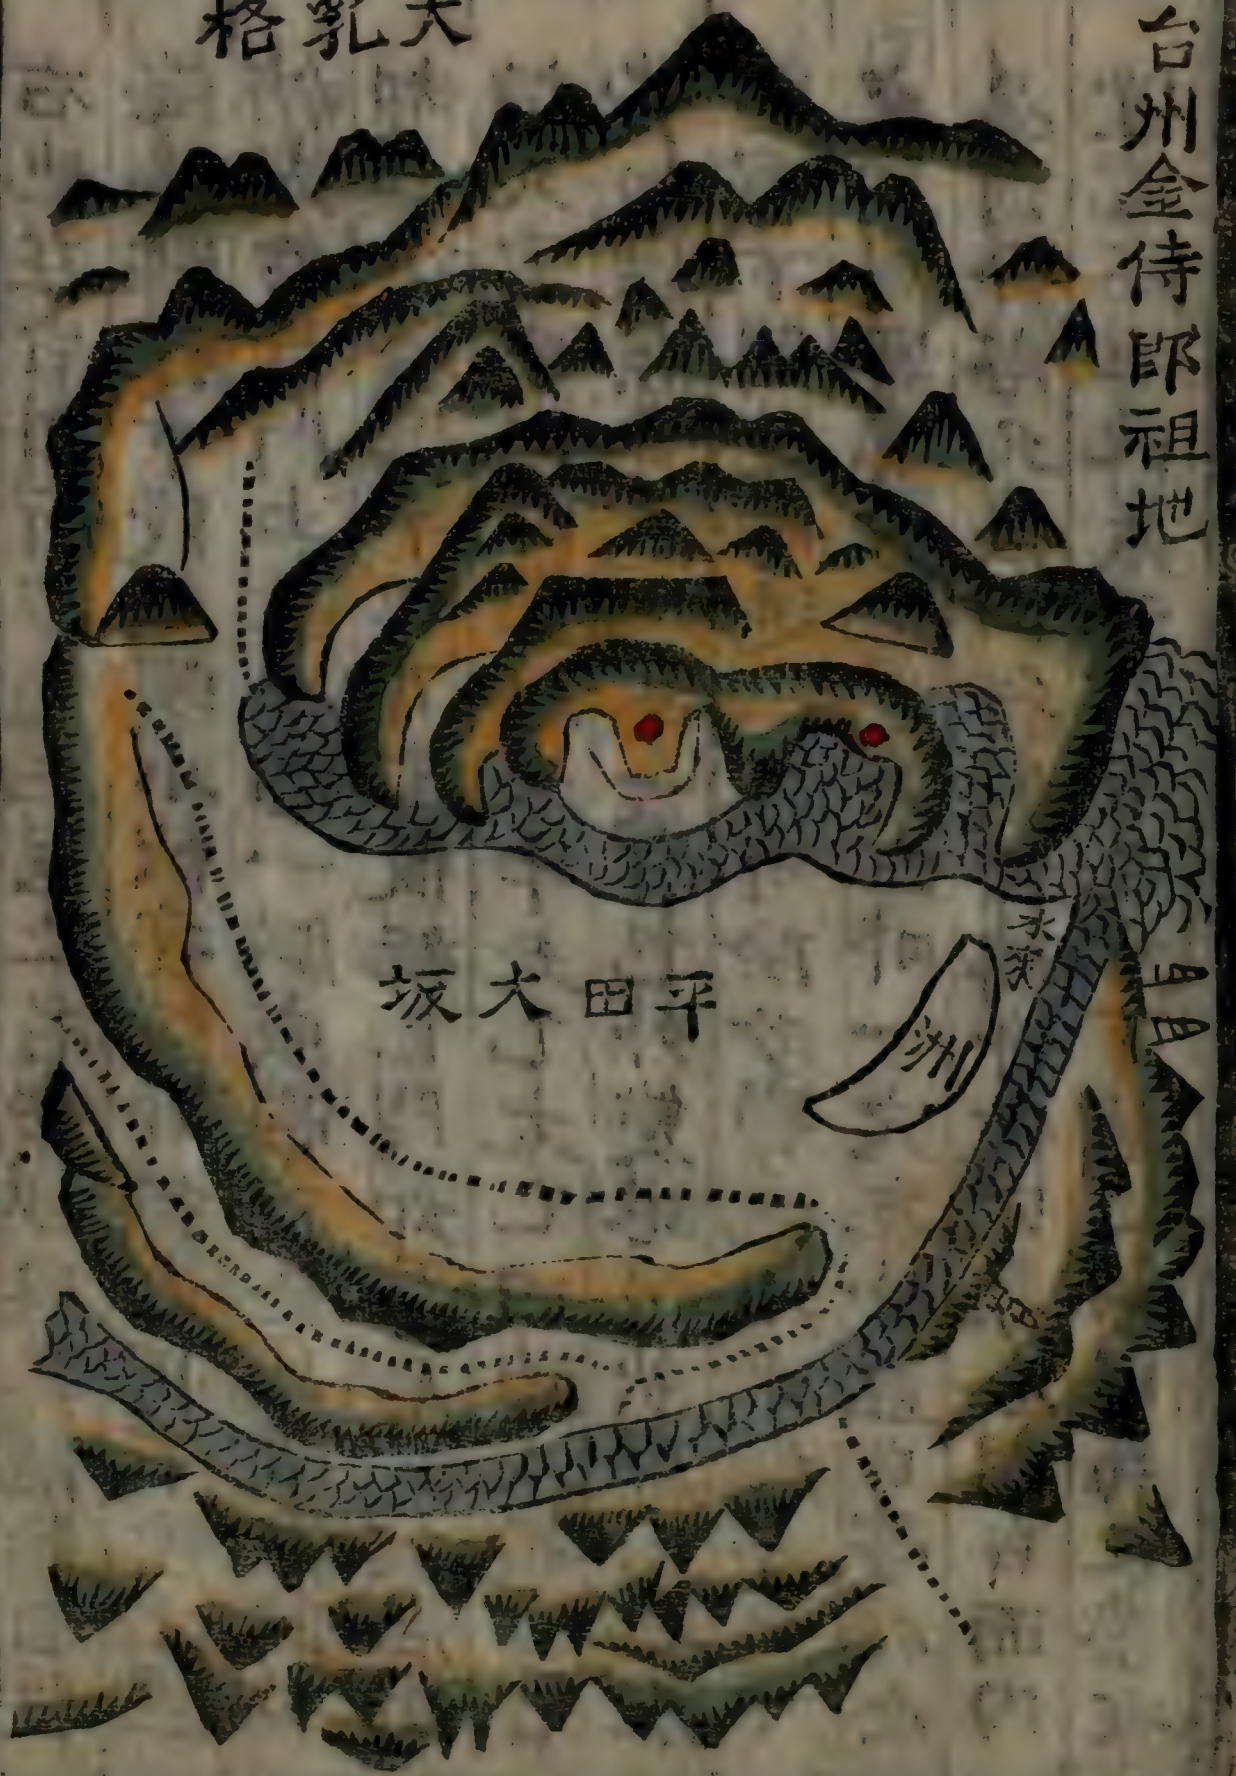 台州金侍郎祖地
大乳格
平田大坂
洲
水來